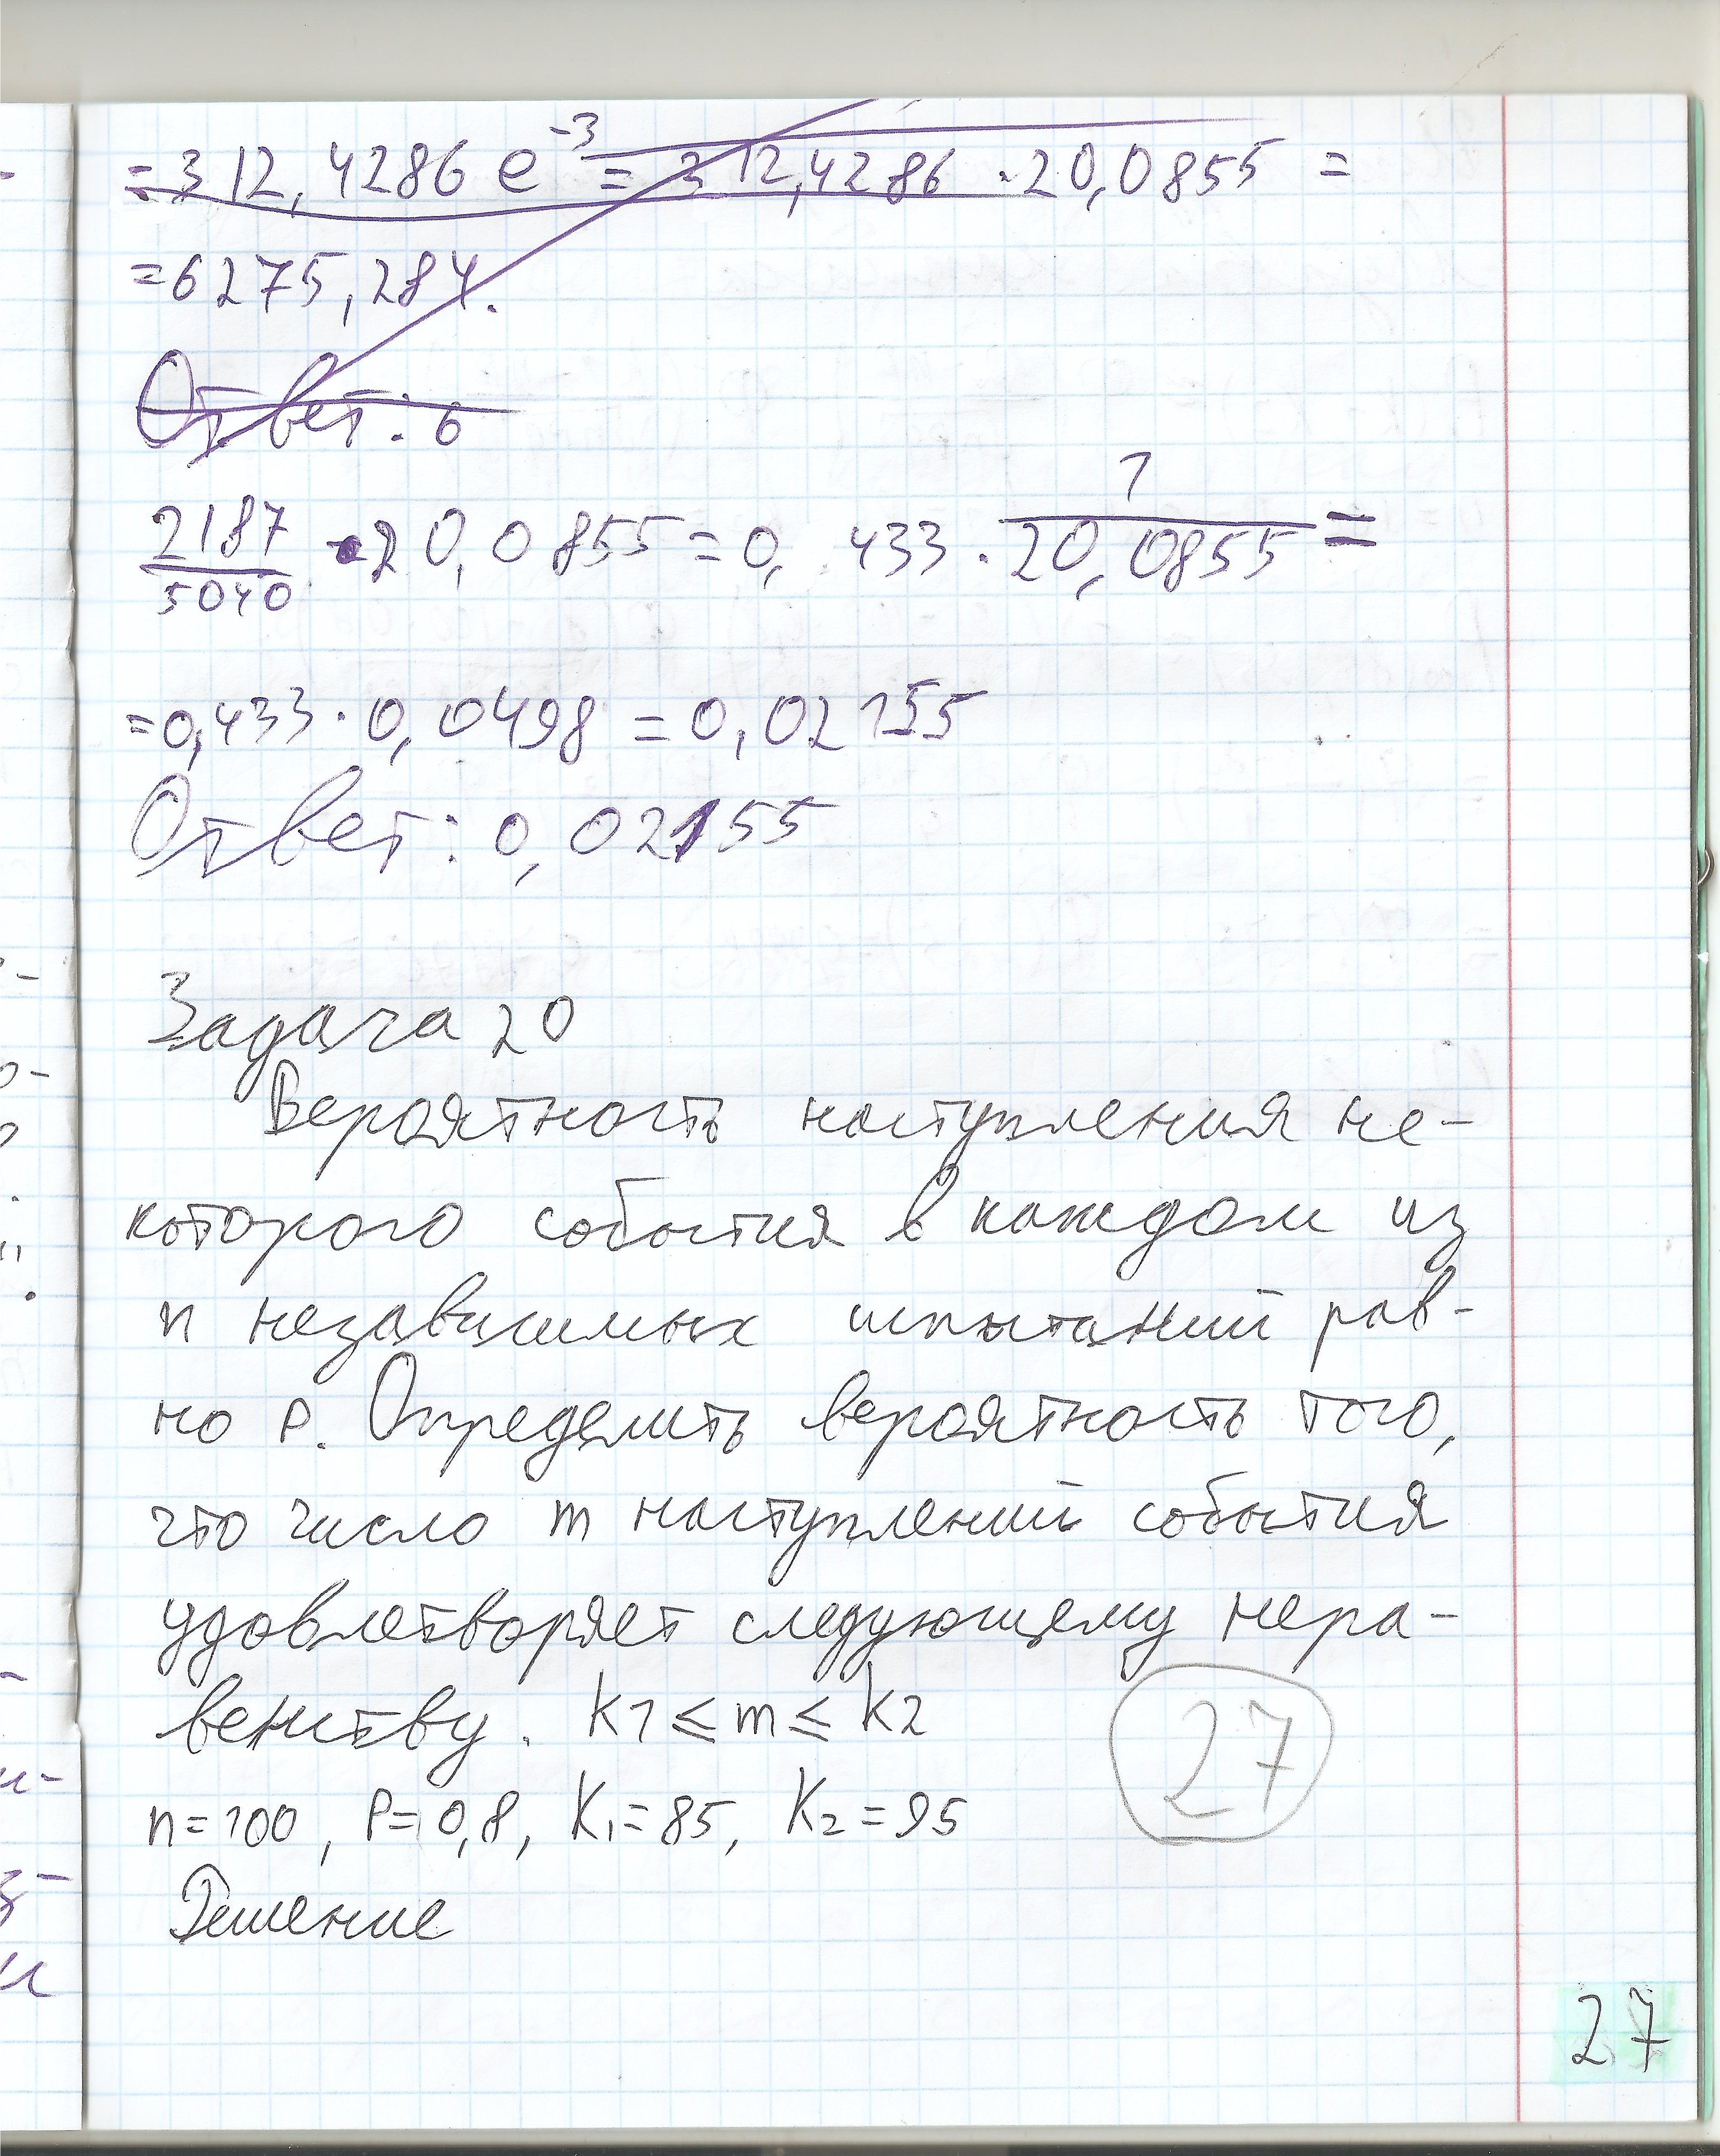 = 312,4286 e^-3 = 312,4286 · 20,0855 =
= 6275,284.
Ответ: 6
2187/5040 · 20,0855 = 0,433 · 1/20,0855 =
= 0,433 · 0,0498 = 0,02155
Ответ: 0,02155
Задача 20
Вероятность наступления не-
которого события в каждом из
n независимых испытаний рав-
но р. Определить вероятность того,
что число m наступлений события
удовлетворяет следующему нера-
венству. K1 ≤ m ≤ K2
n=100, P=0,8, K1=85, K2=95
Решение
27
27